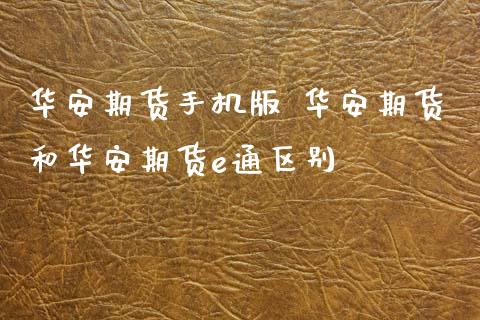 华安期货手机版 华安期货
和华安期货e通区别